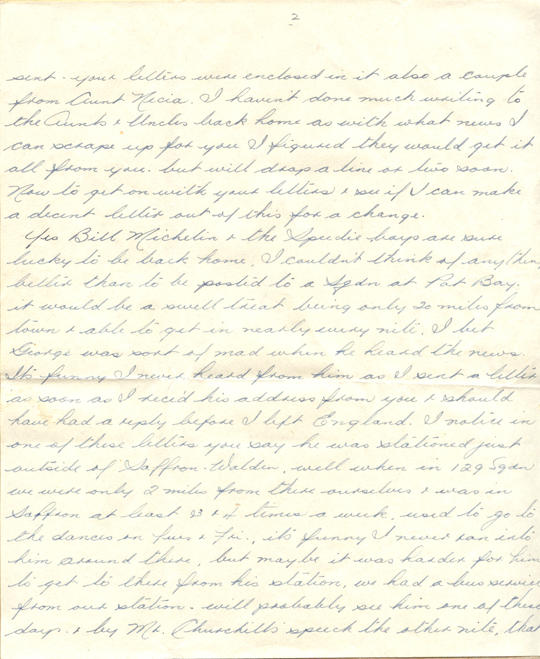 2
sent. your letters were enclosed in it also a couple
from Aunt Necia. I haven't done much writing to
the Aunts & Uncles back home as with what news I
can scrape up for you I figured they would get it
all from you. but will drop a line or two soon.
Now to get on with your letters & see if I can make
a decent letter out of this for a change.
Yes Bill Michelin & the Speedie boys are sure
lucky to be back home, I couldn't think of anything
better than to be posted to a Sqdn at Pat Bay.
it would be a swell treat being only 20 miles from
town & able to get in nearly every nite. I bet
George was sort of mad when he heard the news.
It's funny I never heard from him as I sent a letter
as soon as I recid his address from you & should
have had a reply before I left England. I notice in
one of these letters you say he was stationed just
outside of Saffron-Walden, well when in 129 Sqdn
we were only 2 miles from there ourselves & was in
Saffron at least 3 & times a week. used to go to
the dances on Tues & Fri., it's funny I never ran into
him around there, but maybe it was harder for him
to get to there from his station, we had a bus service
from our station. will probably see him one of these
days. & by Mr. Churchill's speech the other nite, that